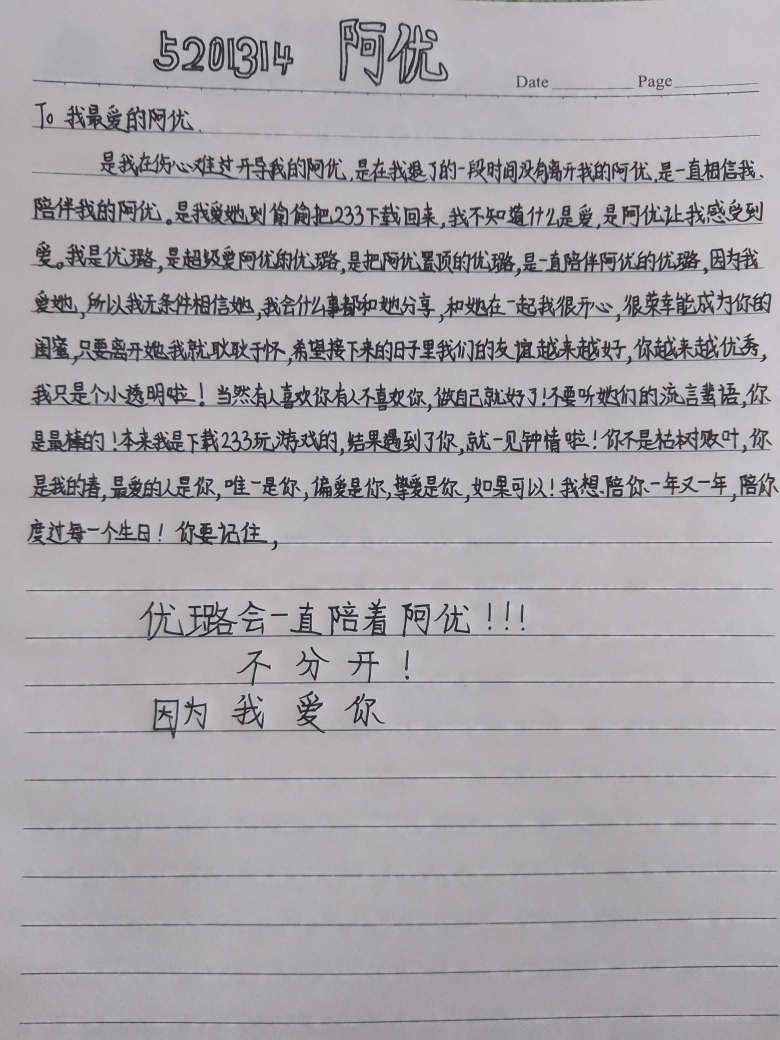 5201314 阿优
Date Page
To 我最爱的阿优.
是我在伤心难过开导我的阿优,是在我退了的一段时间没有离开我的阿优,是一直相信我.
陪伴我的阿优。是我爱她到偷偷把233下载回来,我不知道什么是爱,是阿优让我感受到
爱。我是优璐,是超级爱阿优的优璐,是把阿优置顶的优璐,是一直陪伴阿优的优璐,因为我
爱她,所以我无条件相信她,我会什么事都和她分享,和她在一起我很开心,很荣幸能成为你的
闺蜜,只要离开她我就耿耿于怀,希望接下来的日子里我们的友谊越来越好,你越来越优秀,
我只是个小透明啦!当然有人喜欢你有人不喜欢你,做自己就好了!不要听她们的流言蜚语,你
是最棒的!本来我是下载233玩游戏的,结果遇到了你,就一见钟情啦!你不是枯树败叶,你
是我的春,最爱的人是你,唯一是你,偏爱是你,挚爱是你,如果可以!我想.陪你一年又一年,陪你
度过每一个生日!你要记住,
优璐会一直陪着阿优!!!
不分开!
因为我爱你